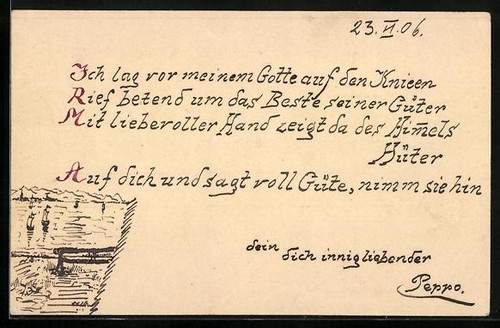 23. VI. 06.
Ich lag vor meinem Gotte auf den Knieen
Rief betend um das Beste seiner Güter
Mit liebevoller Hand zeigt da des Himels
Hüter
Auf dich und sagt voll Güte, nimm sie hin
dein
dich innig liebender
Peppo.